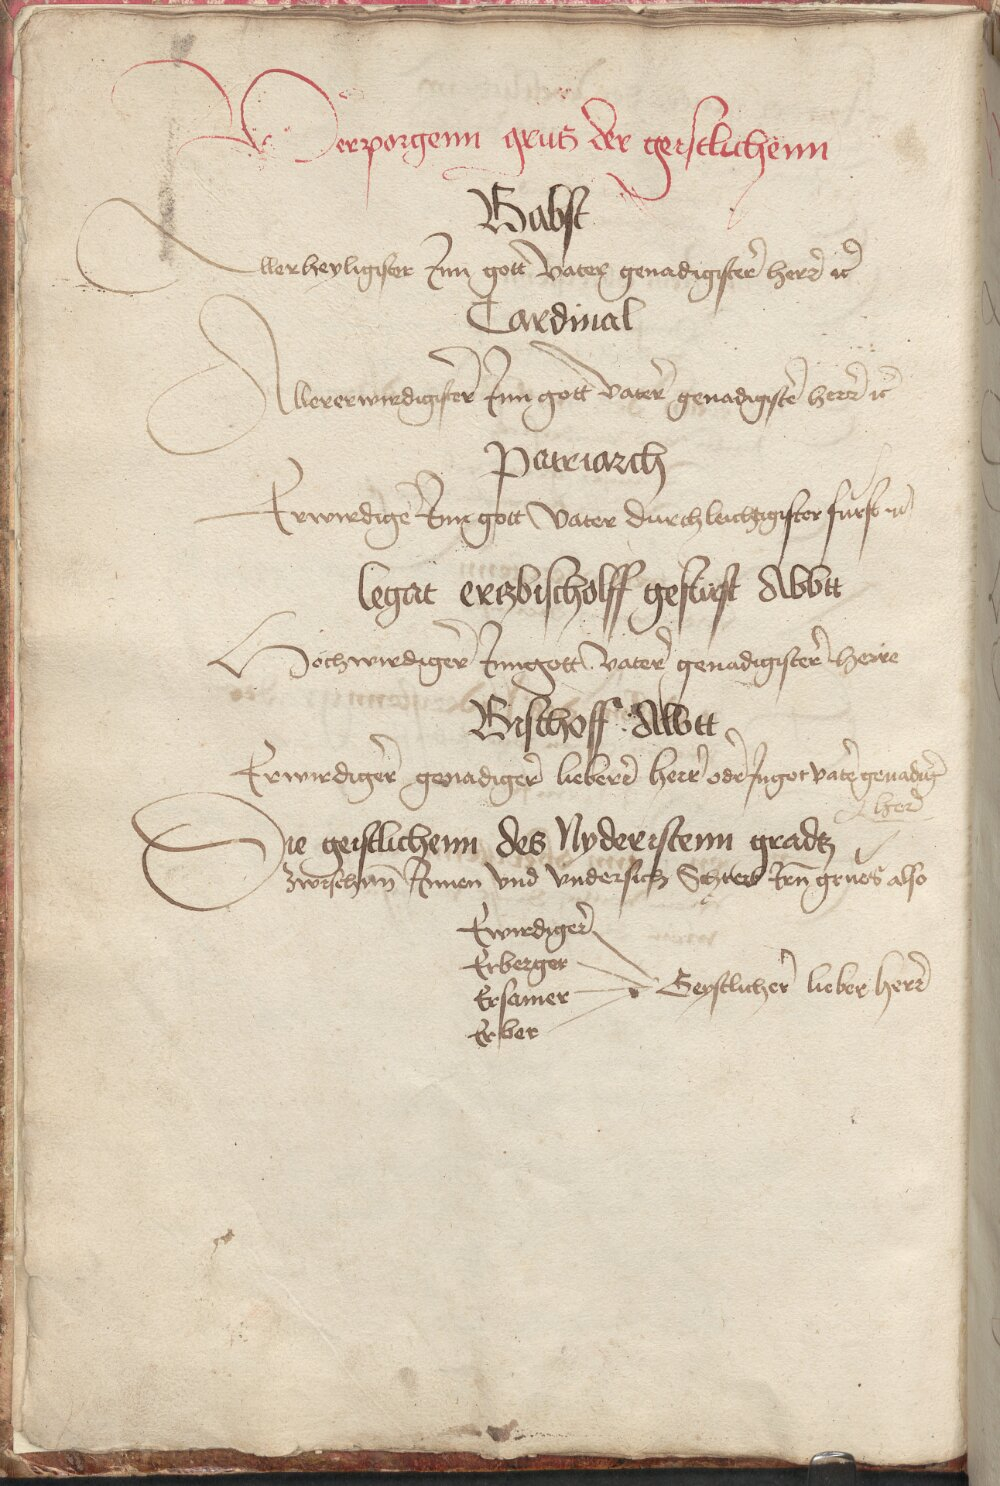 Verporgenn grus der geistlichenn
Babst
Allerheyligister Inn gott Vater genadigister herr ꝛc
Cardinal
Allererwirdigister Inn gott Vater genadigiste herr ꝛc
Patriarch
Erwirdige Inn gott Vater durchleichtigister furst ꝛc
legat ertzbischolff gefurst Abbtt
Hochwirdiger Inn gott Vater genadigister herre
Bischoff Abbtt
Erwirdiger genadiger lieber herr oder In got vater genadig
herr
Die geistlichenn des Nyderistenn gradtz
Innen vnd vndersich grues also
Erwirdiger
Erberger
Ersamer Geystlicher lieber herr
Erber